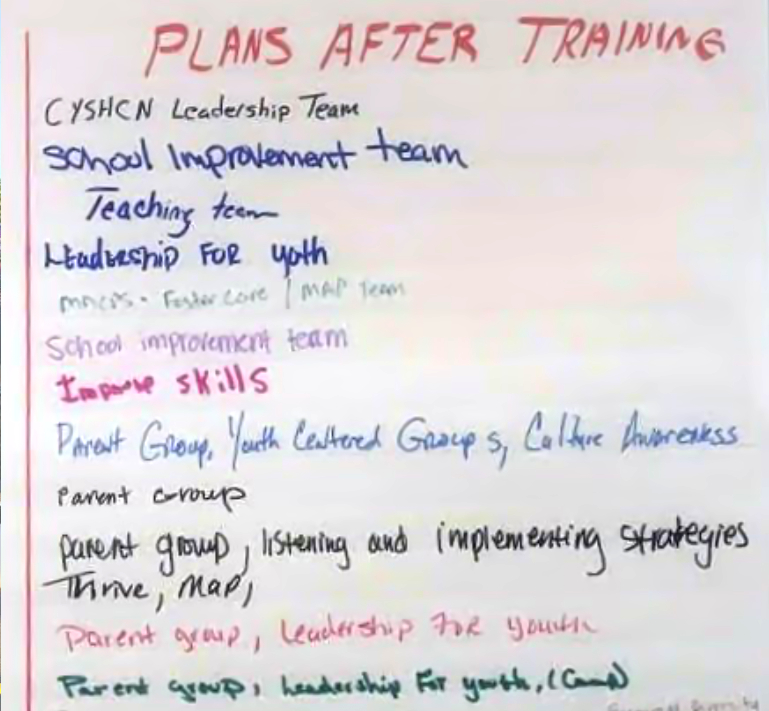 PLANS AFTER TRAINING
CYSHCN Leadership Team
School Improvement team
Teaching team
Leadership FOR yoth
Foster Care / MAP Team
School improvement team
Improve skills
Parent Group, Youth Centered Groups, Culture Awareness
Parent Group
parent group, listening and implementing strategies
Thrive, Map,
Parent group, Leadership FOR youth
Parent group, Leadership For youth,